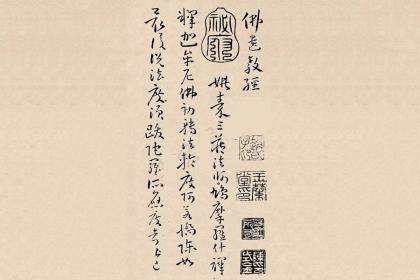 佛遺教經
姚秦三藏法師鳩摩羅什譯
釋迦牟尼佛初轉法輪度阿若憍陳如
最後說法度須跋陀羅所應度者皆已
玉蘭堂印